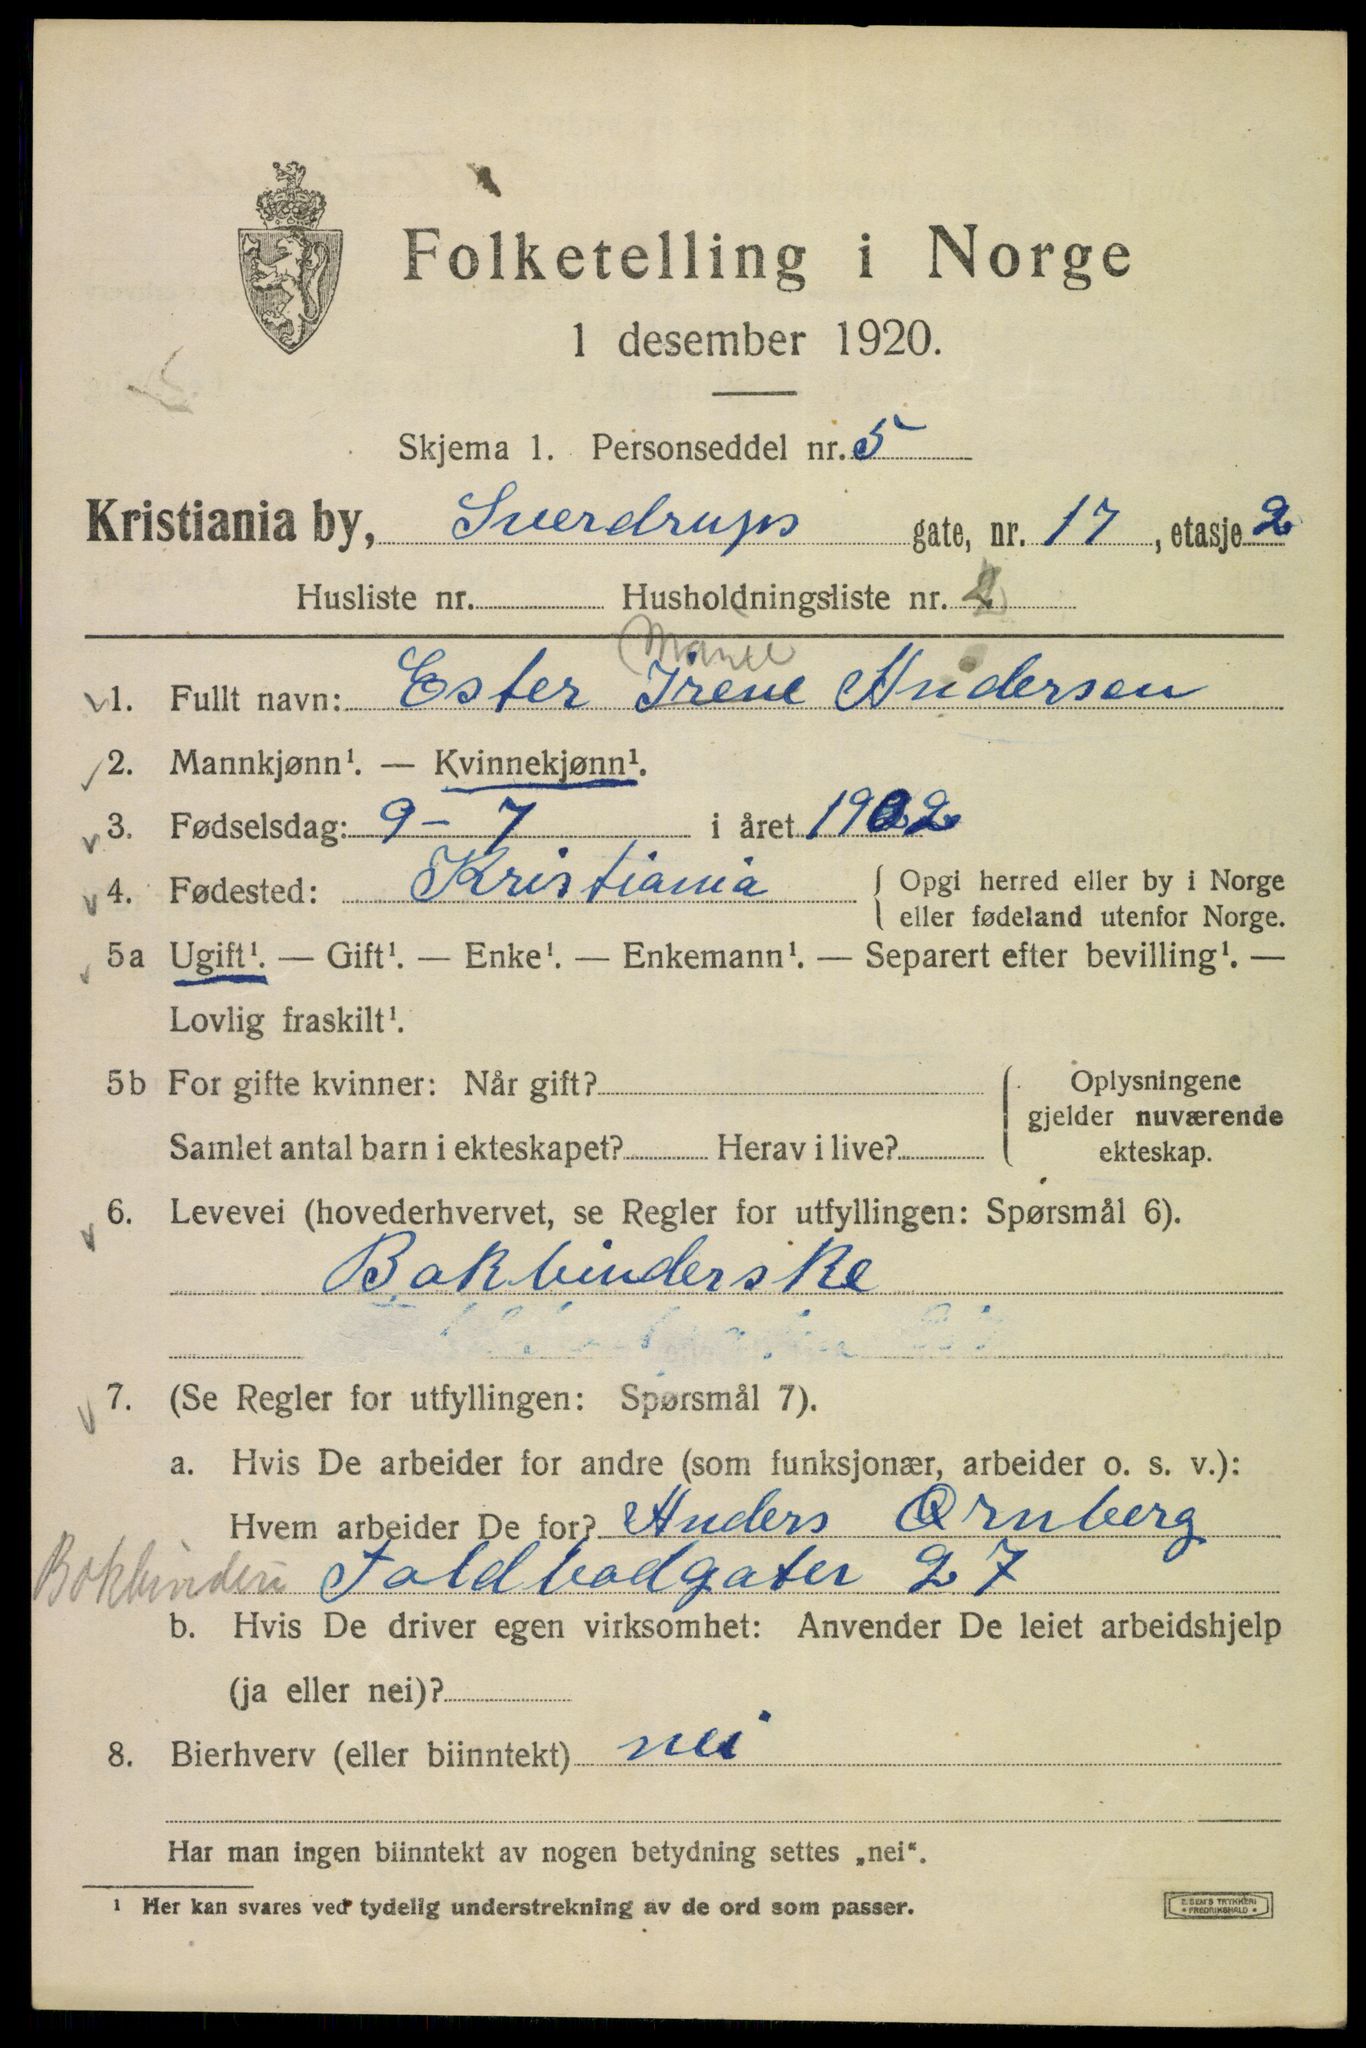 Folketelling i Norge
1 desember 1920.
Skjema 1. Personseddel nr. 5
Kristiania by, Sverdrups gate, nr. 17, etasje 2
Husliste nr. Husholdningsliste nr. 2
Marie
1. Fullt navn: Ester Irene Andersen
2. Mannkjønn¹. — Kvinnekjønn¹.
3. Fødselsdag: 9 - 7 i året 1902
4. Fødested: Kristiania { Opgi herred eller by i Norge
eller fødeland utenfor Norge.
5a Ugift¹. — Gift¹. — Enke¹. — Enkemann¹. — Separert efter bevilling¹. —
Lovlig fraskilt¹.
5b For gifte kvinner: Når gift? Oplysningene
gjelder nuværende
Samlet antal barn i ekteskapet? Herav i live? ekteskap.
6. Levevei (hovederhvervet, se Regler for utfyllingen: Spørsmål 6).
Bokbinderske
7. (Se Regler for utfyllingen: Spørsmål 7).
a. Hvis De arbeider for andre (som funksjonær, arbeider o. s. v.):
Hvem arbeider De for? Anders Ørnberg
Bokbinderi Toldbodgaten 27
b. Hvis De driver egen virksomhet: Anvender De leiet arbeidshjelp
(ja eller nei)?
8. Bierhverv (eller biinntekt) nei
Har man ingen biinntekt av nogen betydning settes „nei“.
¹ Her kan svares ved tydelig understrekning av de ord som passer.
E. SEM'S TRYKKERI
FREDRIKSHALD